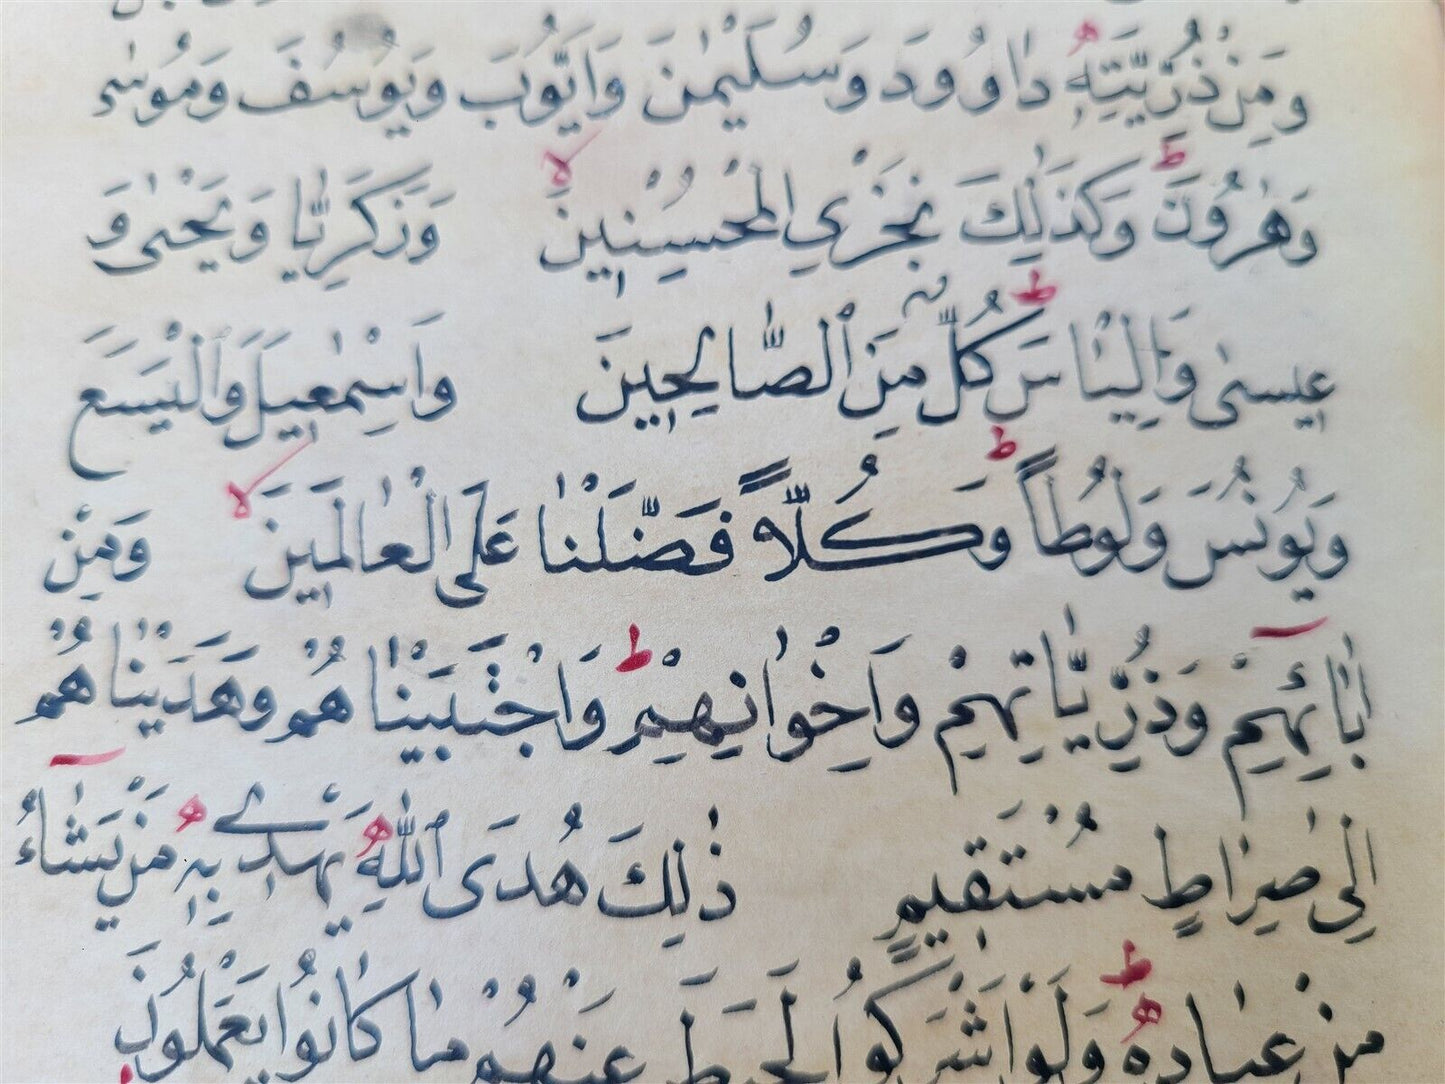 وَمِنْ ذُرِّيَّتِهٖ دٰاوُودَ وَسُلَيْمٰنَ وَاَيُّوبَ وَيُوسُفَ وَمُوسٰى
وَهٰرُونَ ط وَكَذٰلِكَ نَجْزِي الْمُحْسِنِينَ لا وَزَكَرِيّٰا وَيَحْيٰى وَ
عِيسٰى وَاِلْيٰاسَ ط كُلٌّ مِنَ ٱلصّٰالِحِينَ وَاِسْمٰعِيلَ وَٱلْيَسَعَ
وَيُونُسَ وَلُوطاً ط وَكُلّاً فَضَّلْنٰا عَلَى الْعٰالَمِينَ لا وَمِنْ
اٰبٰٓائِهِمْ وَذُرِّيّٰاتِهِمْ وَاِخْوٰانِهِمْ ط وَاجْتَبَيْنٰاهُمْ وَهَدَيْنٰاهُمْ
اِلٰى صِرٰاطٍ مُسْتَقِيمٍ ذٰلِكَ هُدَى ٱللّٰهِ يَهْدِي بِهٖ مَنْ يَشٰٓاءُ
مِنْ عِبٰادِهٖ ط وَلَوْ اَشْرَكُوا لَحَبِطَ عَنْهُمْ مٰا كٰانُوا يَعْمَلُونَ